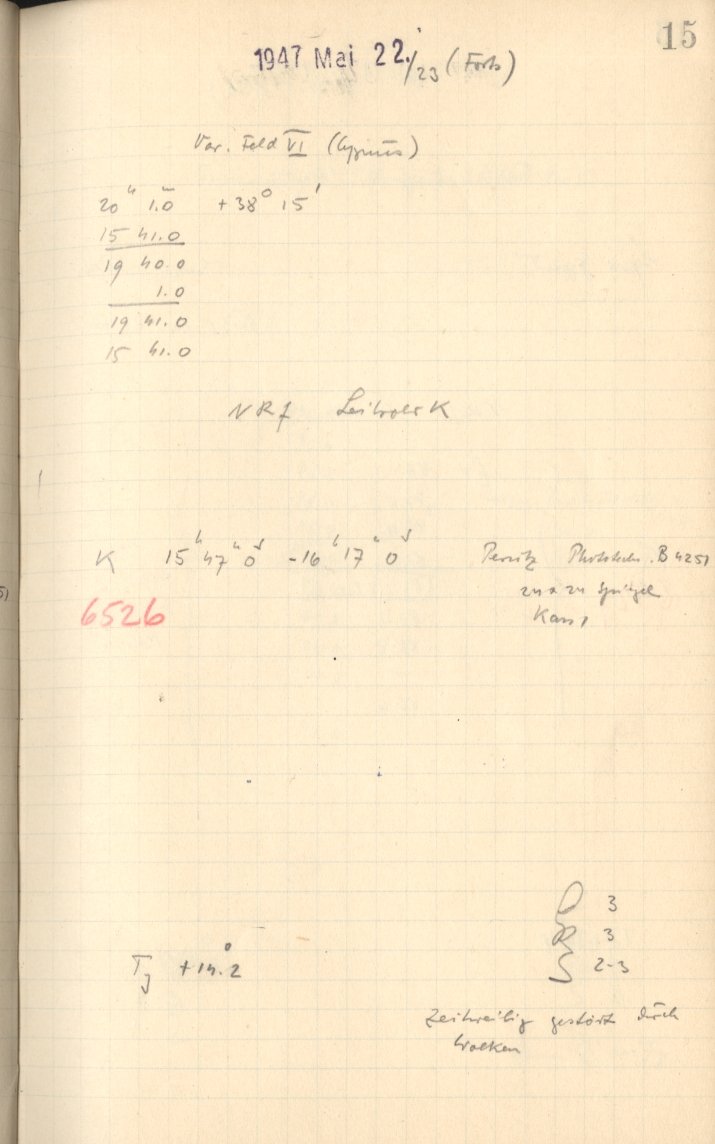 15
1947 Mai 22./23 (Forts)
Var. Feld VI (Cygnus)
20ʰ 1.0ᵐ +38° 15'
15 41.0
19 40.0
1.0
19 41.0
15 41.0
NRf K
K 15ʰ 47ᵐ 0ˢ -16ʰ 17ᵐ 0ˢ Perutz B 4251
zu Spiegel
6526
3
3
Tj +14.°2 S 2-3
zeitweilig gestört durch
Wolken